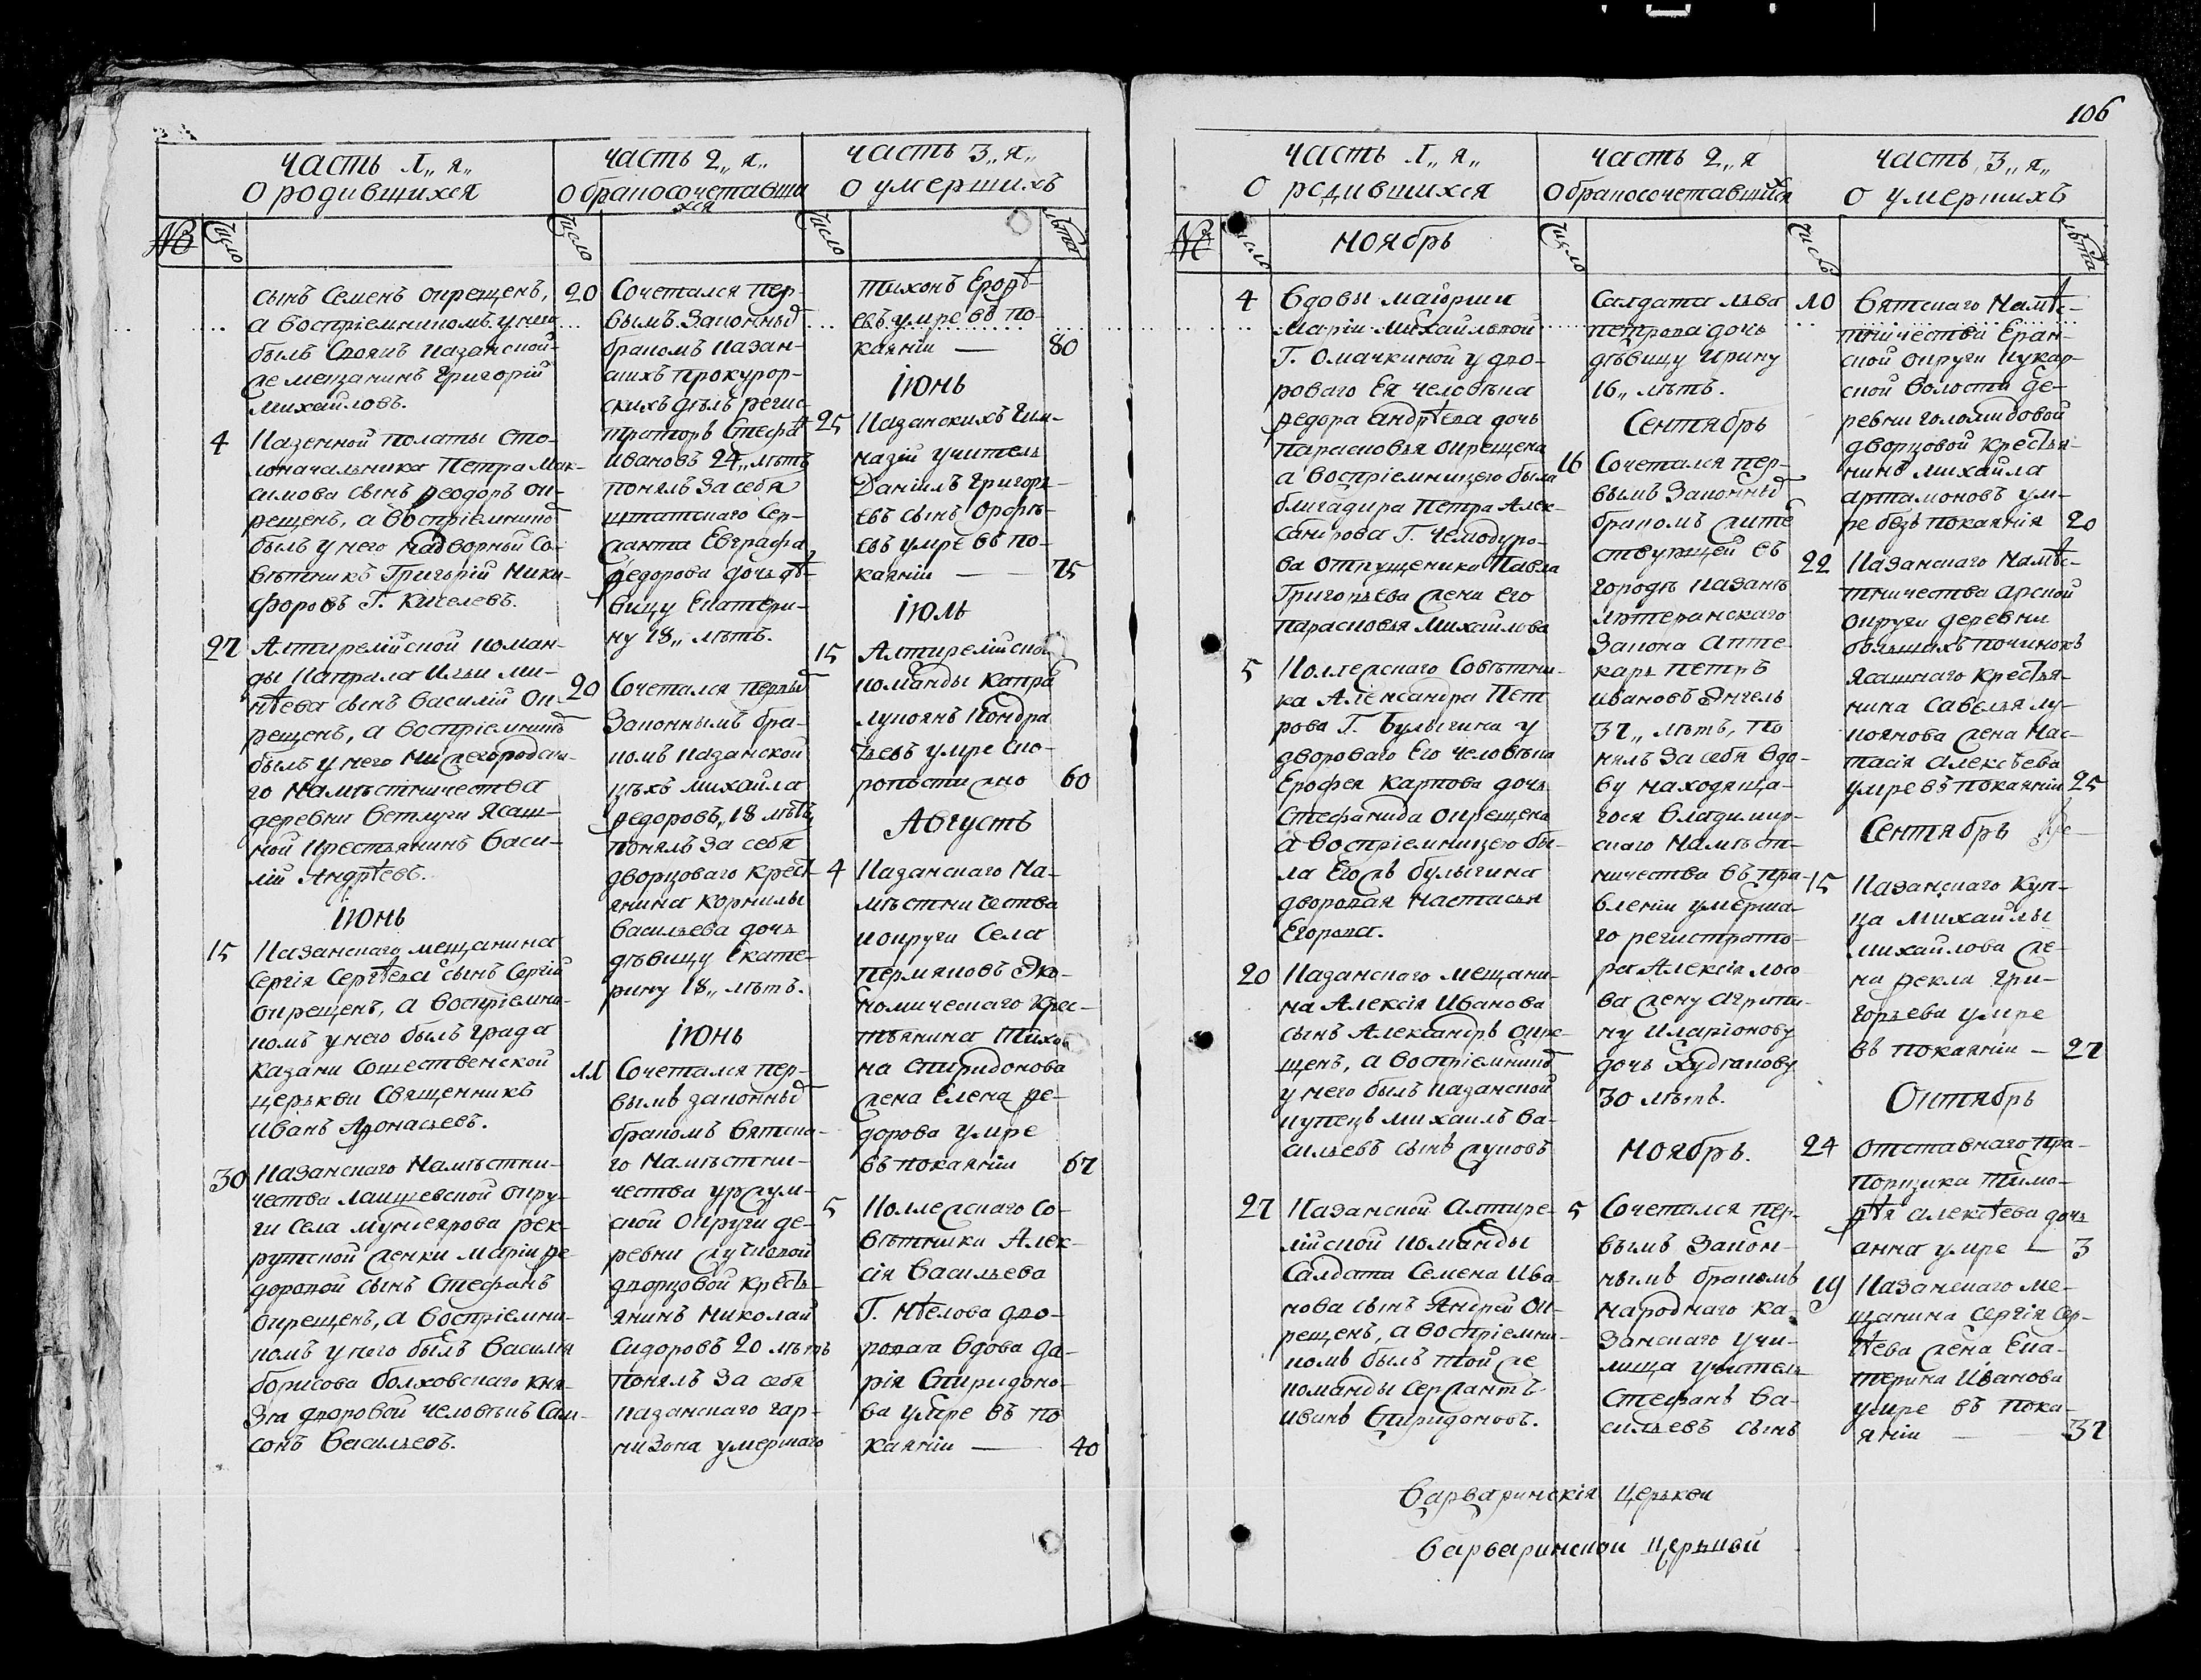 106
часть 1„я„
О родившихся
№
число
сынъ Семенъ окрещенъ,
а воспріемникомъ у них
былъ Своякъ казанской
же мещанинъ Григорій
Михайловъ.
4 Казенной полаты сто-
лоначальника Петра Мак-
симова сынъ Ѳеодоръ ок-
рещенъ, а воспріемником
былъ у него надворный Со-
вѣтникъ Григорій Ники-
форовъ Г. Киселевъ.
27 Алтирелійской коман-
ды капрала Ильи Ми-
нѣева сынъ Василій ок-
рещенъ, а воспріемником
былъ у него нижегородска-
го намѣстничества
деревни Ветлуги ясаш-
ной крестьянинъ Васи-
лій Андрѣевъ.
іюнь
15 Казанскаго мещанина
Сергія Сергѣева сынъ Сергій
окрещенъ, а воспріемни-
комъ у него былъ града
Казани Сошественской
церькви Священникъ
Иванъ Аѳонасьевъ.
30 Казанскаго намѣстни-
чества лаишевской окру-
ги села рек-
рутской женки Маріи Ѳе-
доровой сынъ Стефанъ
окрещенъ, а воспріемни-
комъ у него былъ Василья
Борисова Болховскаго кня-
зя дворовой человѣкъ Сам-
сонъ Васильевъ.
часть 2„я„
О бракосочетавши
хся
число
20 Сочетался пер-
вымъ законным
бракомъ казан-
скихъ прокурор-
скихъ дѣлъ регис-
траторъ Стефан
Ивановъ 24„ лѣтъ
понялъ за себя
штатскаго сер-
жанта Евграфа
Ѳедорова дочь дѣ-
вицу Екатери-
ну 18„ лѣтъ.
20 Сочетался первым
законнымъ бра-
комъ казанской
цѣхъ Михайла
Ѳедоровъ, 18 лѣтъ
понялъ за себя
дворцоваго кресть
янина Корнилы
Васильева дочь
дѣвицу Екате-
рину 18„ лѣтъ.
іюнь
11 Сочетался пер-
вымъ законным
бракомъ вятска-
го намѣстни-
чества уржум-
ской округи де-
ревни
дворцовой кресть-
янинъ Николай
Сидоровъ 20 лѣтъ
понялъ за себя
казанскаго гар-
низона умершаго
часть 3„я„
О умершихъ
число
лѣта
Тихонъ Ероѳѣ-
евъ умре въ по-
каяніи — 80
іюнь
25 Казанскихъ гим-
назій учитель
Даніилъ Григорь-
евъ сынъ Ореѳь-
евъ умре въ по-
каяніи — 75
іюль
15 Алтирелійской
команды капра
Лукоянъ Кондра
тьевъ умре ско-
ропостижно 60
Августъ
4 Казанскаго на-
мѣстничества
и округи села
Пермяковъ эко-
номическаго крес-
тьянина Тихо
на Спиридонова
жена Елена Ѳе-
дорова умре
въ покаяніи 67
5 Коллежскаго Со-
вѣтника Алек-
сія Васильева
Г. Нѣелова дво-
ровая вдова Да-
рія Спиридоно-
ва умре въ по
каяніи — 40
часть 1„я„
О родившихся
№
число
Ноябрь
4 Вдовы маіорши
Маріи Михайловой
Г. Омачкиной у дво-
роваго Ея человѣка
Ѳедора Андрѣева дочь
Парасковья окрещена
а воспріемницею была
бригадира Петра Алек-
сандрова Г. Чемодуро-
ва отпущеника Павла
Григорьева жена его
Парасковья Михайлова
5 Коллежскаго Совѣтни-
ка Александра Пет
рова Г. Булыгина у
двороваго Его человѣка
Ерофея Карпова дочь
Стефанида окрещена
а воспріемницею бы-
ла Его жъ Булыгина
дворовая Настасья
Егорова.
20 Казанскаго мещани-
на Алексія Иванова
сынъ Александръ окре-
щенъ, а воспріемником
у него былъ казанской
купецъ Михаилъ Ва-
сильевъ сынъ Жуковъ
27 Казанской Алтире-
лійской команды
Салдата Семена Ива-
нова сынъ Андрей ок-
рещенъ, а воспріемни-
комъ былъ той же
команды сержантъ
Иванъ Спиридоновъ.
часть 2„я
О бракосочетавшихся
число
Салдата Льва
Петрова дочь
дѣвицу Ирину
16„ лѣтъ.
Сентябрь
16 Сочетался пер-
вымъ законным
бракомъ жите
ствующей въ
городѣ Казанѣ
лютеранскаго
закона апте-
карь Петръ
Ивановъ Энгель
37„ лѣтъ, по
нялъ за себя вдо-
ву находяща-
гося владимир-
скаго намѣст-
ничества въ пра-
вленіи умерша-
го регистрато-
ра Алексія Лосо
ва жену Агрипи-
ну Иларіонову
дочь
30 лѣтъ.
Ноябрь.
5 Сочетался пер-
вымъ закон-
нымъ бракомъ
народнаго ка-
занскаго учи-
лища учитель
Стефанъ Ва-
сильевъ сынъ
часть 3„я„
О умершихъ
число
лѣта
10 Вятскаго намѣс-
тничества Еран-
ской округи Кукар-
ской волости де-
ревни Голомидовой
дворцовой крестья-
нинъ Михайла
Артамоновъ ум-
ре безъ покаянія 20
22 Казанскаго намѣс-
тничества арской
округи деревни
большихъ починокъ
ясашнаго крестья-
нина Савелья Лу-
коянова жена Нас-
тасія Алексѣева
умре въ покаяніи 25
Сентябрь
15 Казанскаго куп-
ца Михайлы
Михайлова же-
на Ѳекла Гри-
горьева умре
въ покаяніи — 27
Октябрь
24 Отставнаго пра-
порщика Тимо-
ѳѣя Алексѣева дочь
Анна умре — 3
19 Казанскаго ме-
щанина Сергія Сер-
гѣева жена Ека-
терина Иванова
умре въ пока-
яніи — 37
Варваринскія церькви
Варваринской церькви